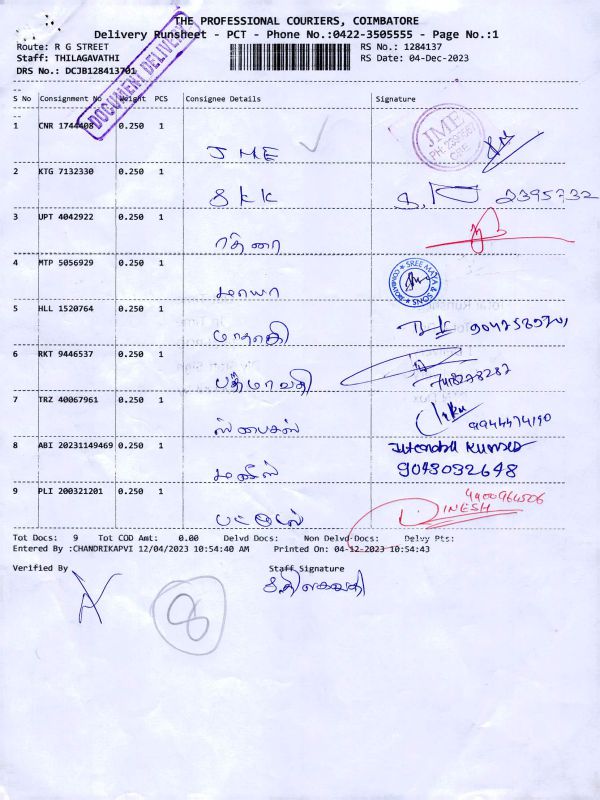 THE PROFESSIONAL COURIERS, COIMBATORE
Delivery Runsheet - PCT - Phone No.:0422-3505555 - Page No.:1
Route: R G STREET
RS No.: 1284137
Staff: THILAGAVATHI
RS Date: 04-Dec-2023
DRS No.: DCJB128413701
DOCUMENT DELIVERY
S No Consignment No Weight PCS Consignee Details Signature
1 CNR 1744408 0.250 1 JME
JME
CBE
2 KTG 7132330 0.250 1 SKK
2395732
3 UPT 4042922 0.250 1 ரத்னா
4 MTP 5056929 0.250 1 மாயா
SREE MAYA & SONS
5 HLL 1520764 0.250 1 மாருதி
6 RKT 9446537 0.250 1 பத்மாவதி
7418278282
7 TRZ 40067961 0.250 1 ஸ்பைகஸ்
9944474190
8 ABI 20231149469 0.250 1
9043032648
9 PLI 200321201 0.250 1 பட்டேல்
DINESH
Tot Docs: 9 Tot COD Amt: 0.00 Delvd Docs: Non Delvd-Docs: Delvy Pts:
Entered By :CHANDRIKAPVI 12/04/2023 10:54:40 AM Printed On: 04-12-2023 10:54:43
Verified By Staff Signature
8